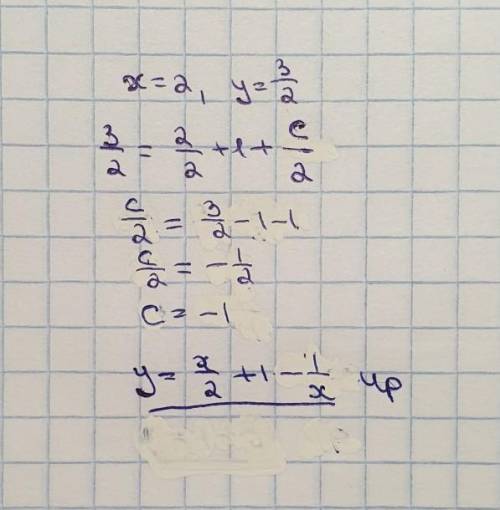 x = 2, y = 3/2
3/2 = 2/2 + 1 + c/2
c/2 = 3/2 - 1 - 1
c/2 = - 1/2
c = -1
y = x/2 + 1 - 1/x